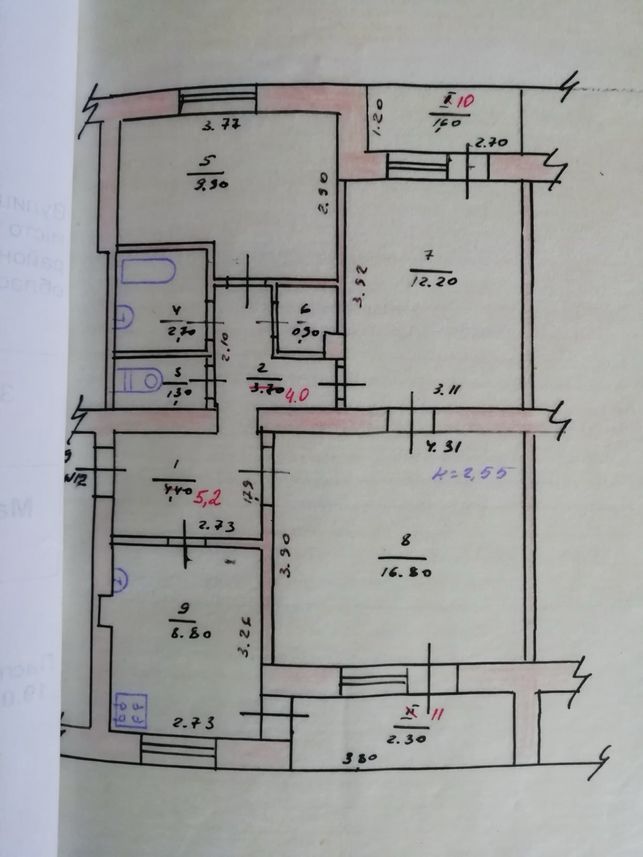 3.77
1.20
I 10
1.60
2.70
5
9.90
2.90
7
12.20
3.92
4
2.70
2.10
6
0.90
3
1.30
2
3.70
4.0
3.11
4.31
н=2,55
1
4.40
5,2
1.79
2.73
3.90
8
16.80
9
8.80
3.26
2.73
II 11
2.30
3.80